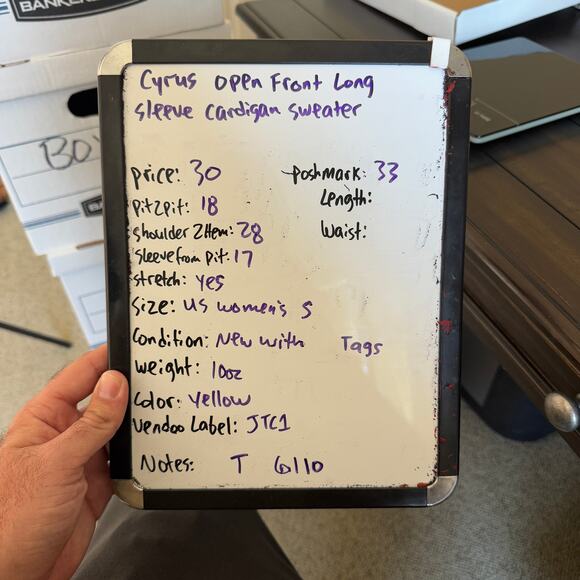 BANKERS
BOX
Cyrus open Front Long
sleeve cardigan sweater
price: 30
poshmark: 33
Length:
pit2pit: 18
Waist:
shoulder 2Hem: 28
sleeve from pit: 17
stretch: yes
size: US women's S
Condition: New with Tags
weight: 10oz
Color: yellow
Vendoo Label: JTC1
Notes: T 6110